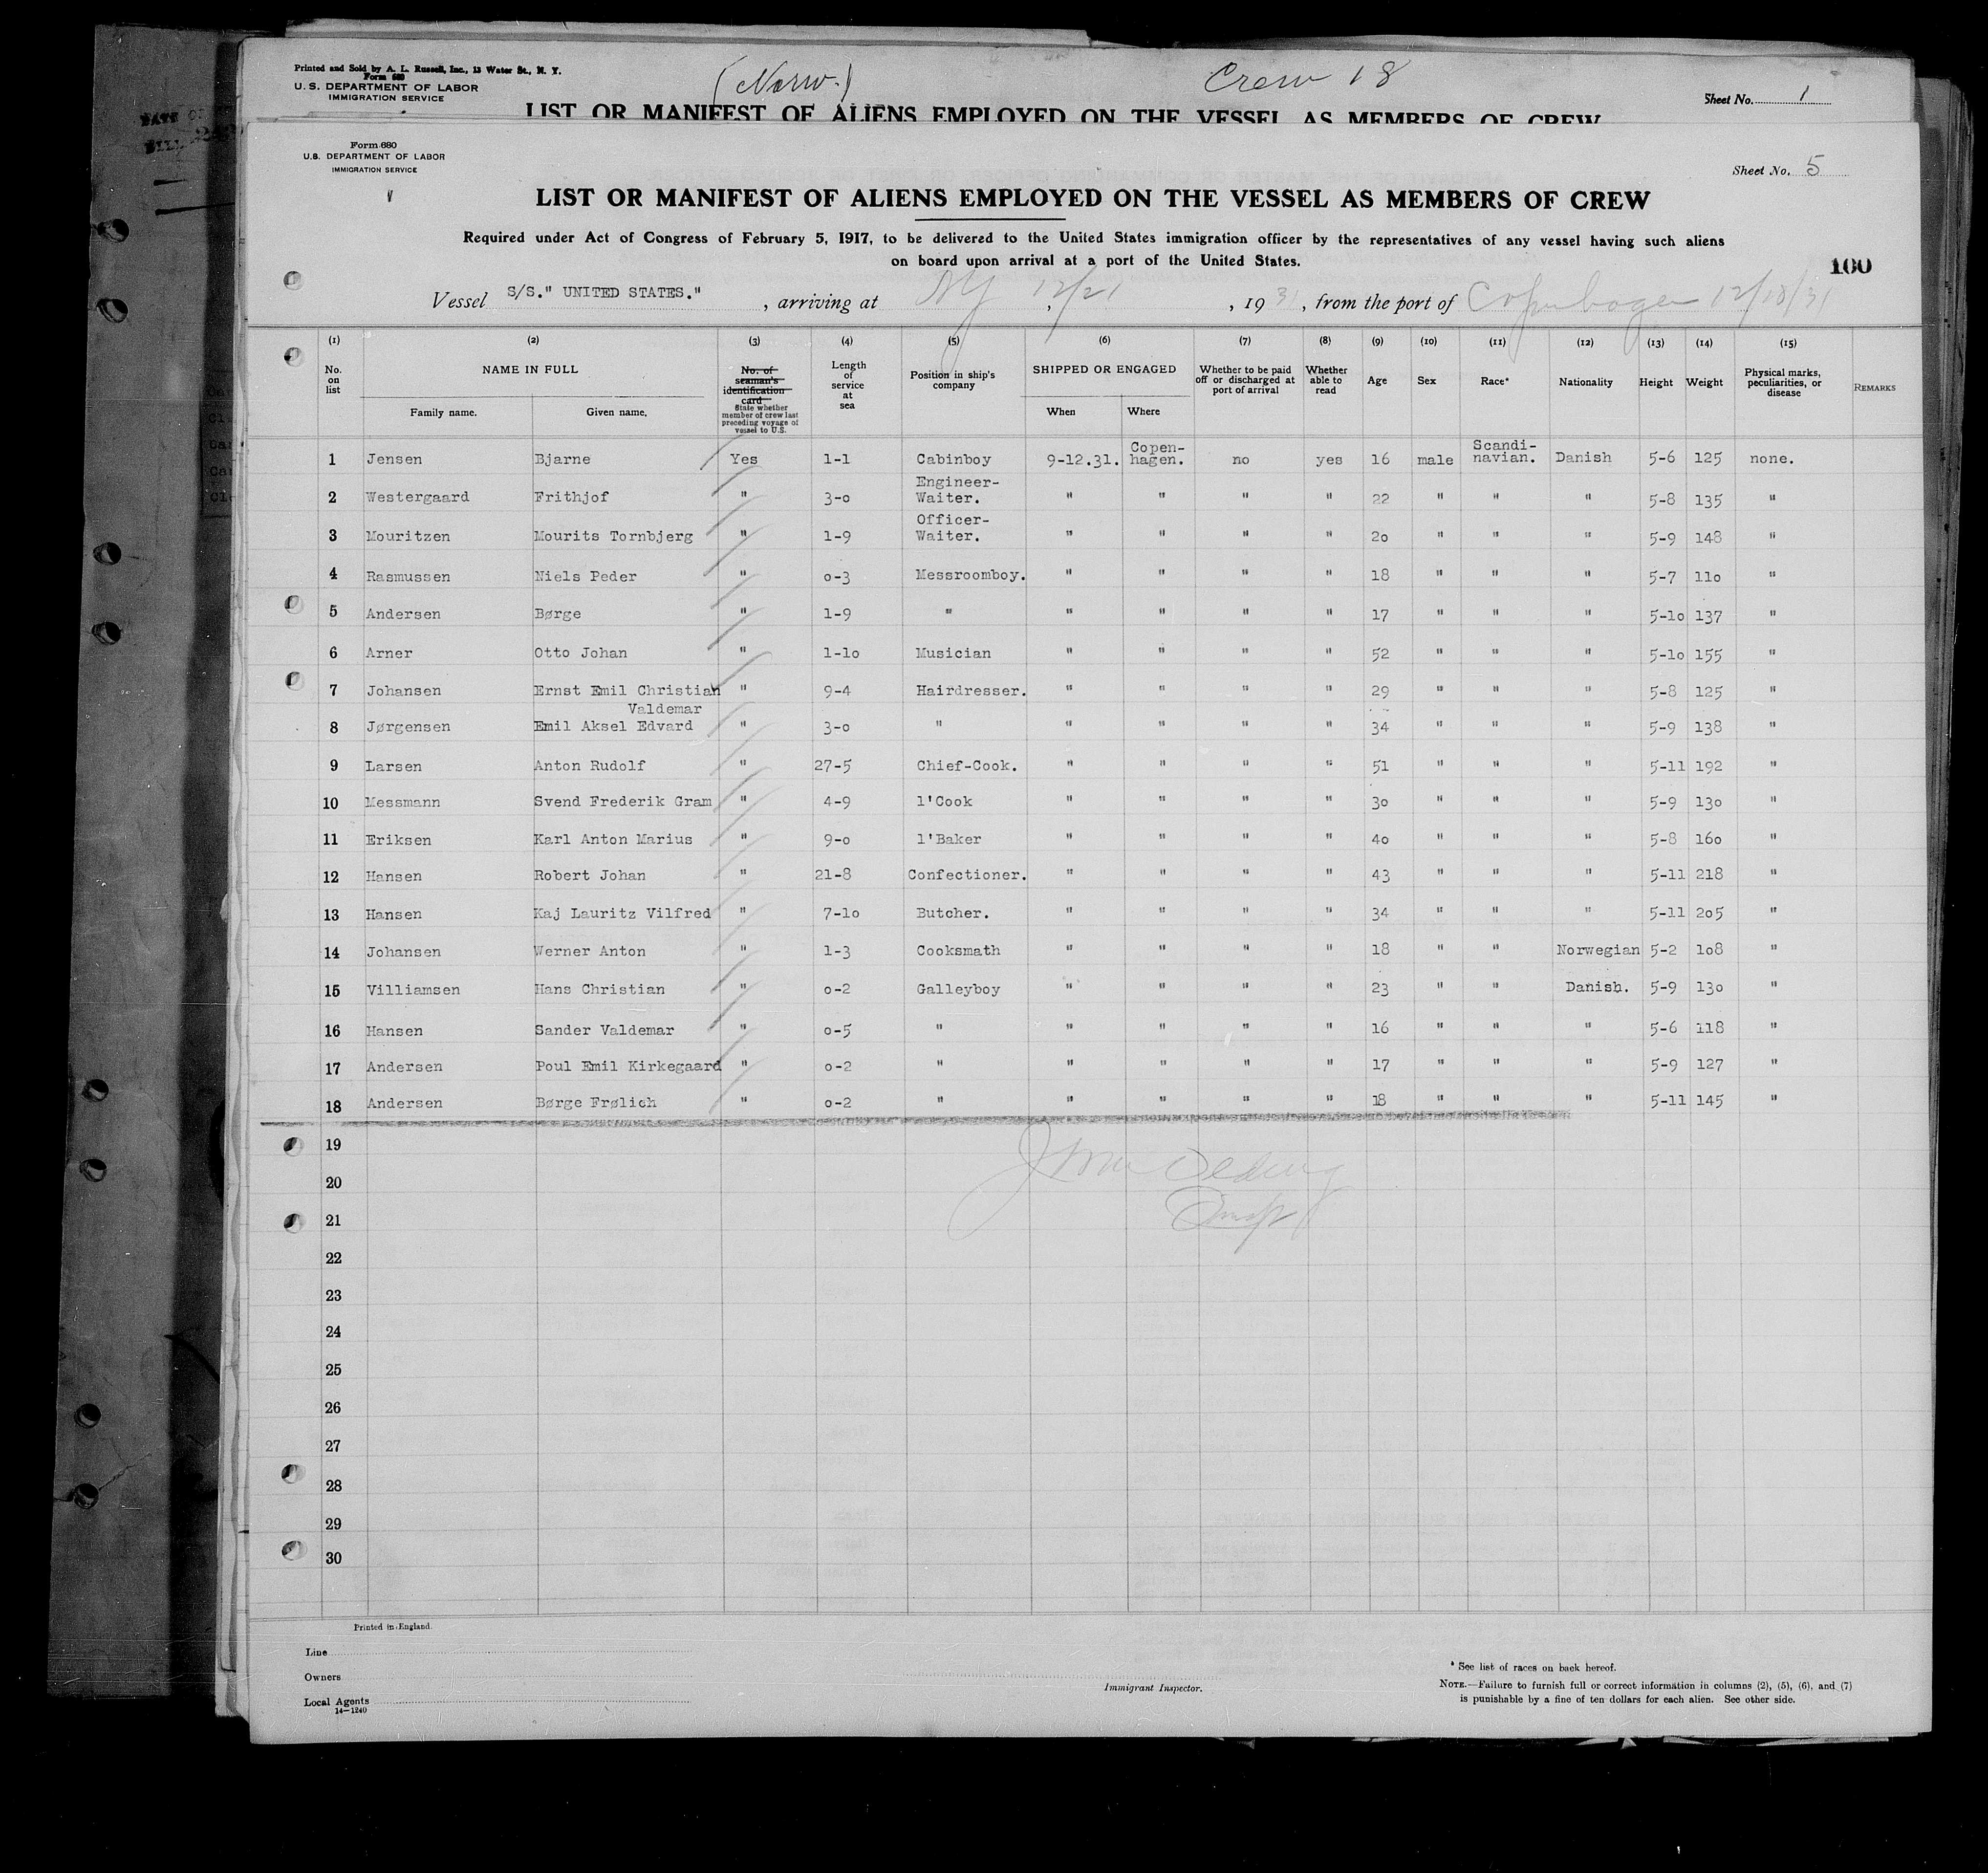 Printed and Sold by A. L. Russell, Inc., 13 Water St., N. Y.
Form 680
U. S. DEPARTMENT OF LABOR
IMMIGRATION SERVICE
(Norw.)
Crew 18
Sheet No. 1
LIST OR MANIFEST OF ALIENS EMPLOYED ON THE VESSEL AS MEMBERS OF CREW
Form 680
U.S. DEPARTMENT OF LABOR
IMMIGRATION SERVICE
Sheet No. 5
LIST OR MANIFEST OF ALIENS EMPLOYED ON THE VESSEL AS MEMBERS OF CREW
Required under Act of Congress of February 5, 1917, to be delivered to the United States immigration officer by the representatives of any vessel having such aliens
on board upon arrival at a port of the United States.
100
Vessel S/S." UNITED STATES.", arriving at NY 12/21, 1931, from the port of Copenhagen 12/10/31
(1) (2) (3) (4) (5) (6) (7) (8) (9) (10) (11) (12) (13) (14) (15)
No. on list
NAME IN FULL
Family name. Given name.
No. of seaman's identification card
State whether member of crew last preceding voyage of vessel to U.S.
Length of service at sea
Position in ship's company
SHIPPED OR ENGAGED
When Where
Whether to be paid off or discharged at port of arrival
Whether able to read
Age
Sex
Race*
Nationality
Height
Weight
Physical marks, peculiarities, or disease
REMARKS
1 Jensen Bjarne Yes 1-1 Cabinboy 9-12.31. Copen-hagen. no yes 16 male Scandi-navian. Danish 5-6 125 none.
2 Westergaard Frithjof " 3-o Engineer-Waiter. " " " " 22 " " " 5-8 135 "
3 Mouritzen Mourits Tornbjerg " 1-9 Officer-Waiter. " " " " 2o " " " 5-9 148 "
4 Rasmussen Niels Peder " o-3 Messroomboy. " " " " 18 " " " 5-7 11o "
5 Andersen Børge " 1-9 " " " " " 17 " " " 5-1o 137 "
6 Arner Otto Johan " 1-1o Musician " " " " 52 " " " 5-1o 155 "
7 Johansen Ernst Emil Christian Valdemar " 9-4 Hairdresser. " " " " 29 " " " 5-8 125 "
8 Jørgensen Emil Aksel Edvard " 3-o " " " " " 34 " " " 5-9 138 "
9 Larsen Anton Rudolf " 27-5 Chief-Cook. " " " " 51 " " " 5-11 192 "
10 Messmann Svend Frederik Gram " 4-9 1'Cook " " " " 3o " " " 5-9 13o "
11 Eriksen Karl Anton Marius " 9-o 1'Baker " " " " 4o " " " 5-8 16o "
12 Hansen Robert Johan " 21-8 Confectioner. " " " " 43 " " " 5-11 218 "
13 Hansen Kaj Lauritz Vilfred " 7-1o Butcher. " " " " 34 " " " 5-11 2o5 "
14 Johansen Werner Anton " 1-3 Cooksmath " " " " 18 " " Norwegian 5-2 1o8 "
15 Villiamsen Hans Christian " o-2 Galleyboy " " " " 23 " " Danish. 5-9 13o "
16 Hansen Sander Valdemar " o-5 " " " " " 16 " " " 5-6 118 "
17 Andersen Poul Emil Kirkegaard " o-2 " " " " " 17 " " " 5-9 127 "
18 Andersen Børge Frølich " o-2 " " " " " 18 " " " 5-11 145 "
19
20
21
22
23
24
25
26
27
28
29
30
Printed in England.
Line
Owners
Local Agents
14—1240
Immigrant Inspector.
* See list of races on back hereof.
NOTE.—Failure to furnish full or correct information in columns (2), (5), (6), and (7)
is punishable by a fine of ten dollars for each alien. See other side.